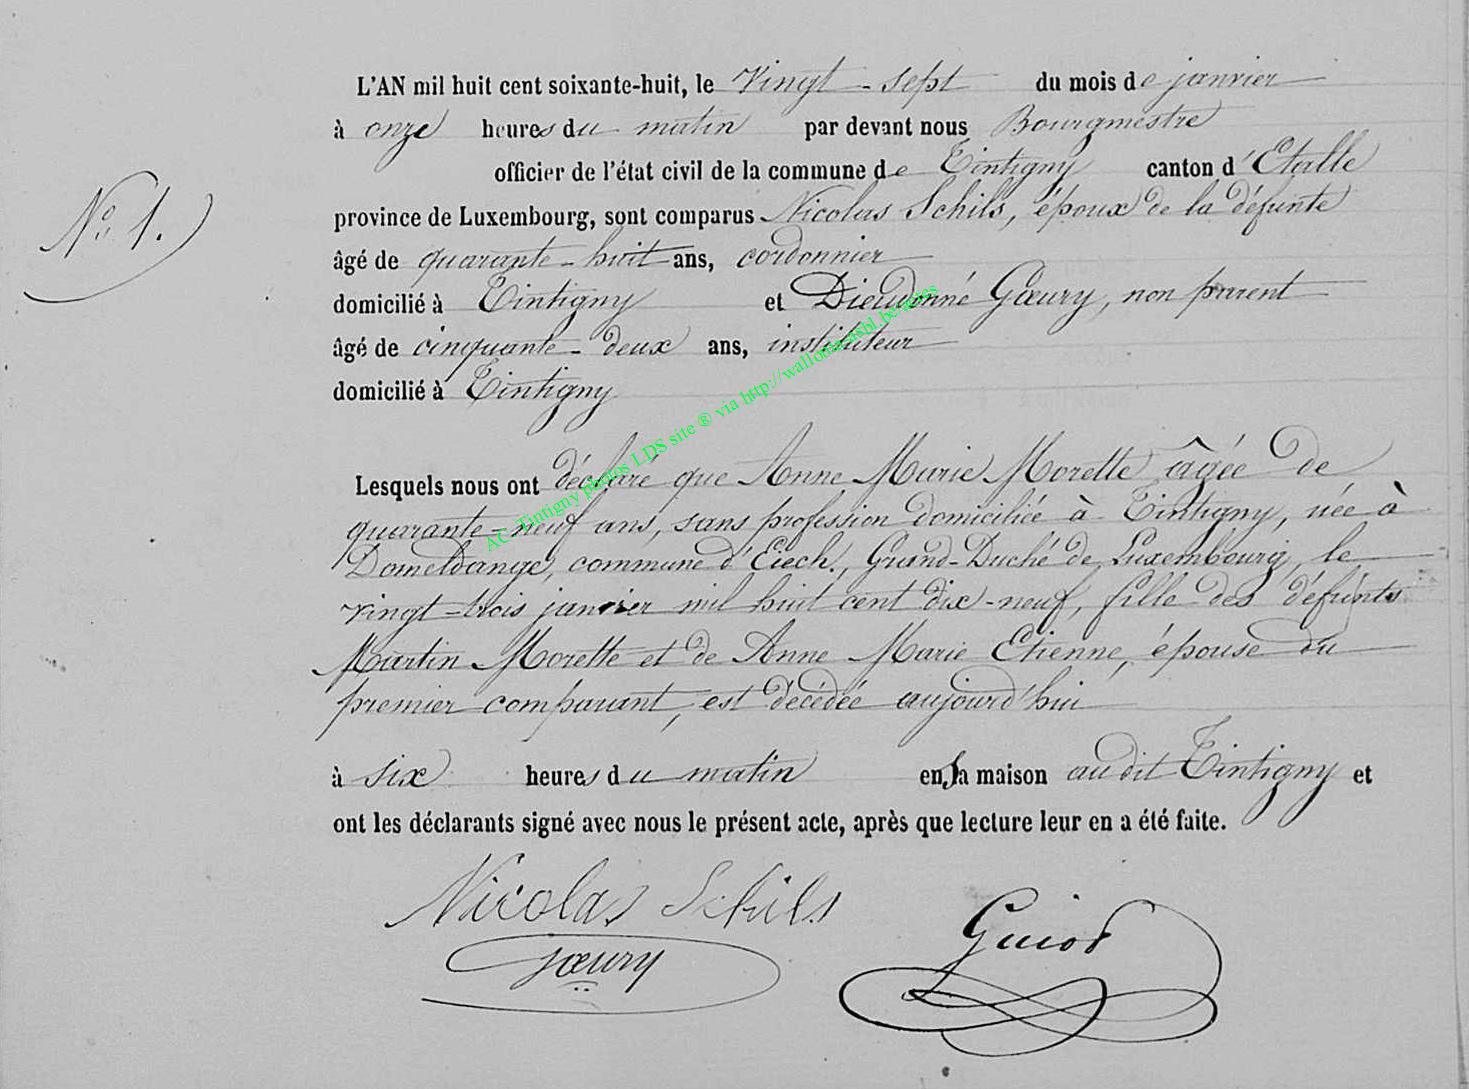 L'AN mil huit cent soixante-huit, le vingt-sept du mois de janvier
à onze heures du matin par devant nous Bourgmestre
officier de l'état civil de la commune de Tintigny canton d'Etalle
N° 1.
province de Luxembourg, sont comparus Nicolas Schils, époux de la défunte
âgé de quarante-huit ans, cordonnier
domicilié à Tintigny et Dieudonné Gœury, non parent
âgé de cinquante-deux ans, instituteur
domicilié à Tintigny
AC Tintigny photos LDS site ® via http://wallonia.asbl.be/actes
Lesquels nous ont déclaré que Anne Marie Morette âgée de
quarante-neuf ans, sans profession domiciliée à Tintigny, née à
Domeldange, commune d'Eiech, Grand-Duché de Luxembourg, le
vingt-trois janvier mil huit cent dix-neuf, fille des défunts
Martin Morette et de Anne Marie Etienne, épouse du
premier comparant, est décédée aujourd'hui
à six heures du matin en sa maison audit Tintigny et
ont les déclarants signé avec nous le présent acte, après que lecture leur en a été faite.
Nicolas Schils
Gœury
Guiot